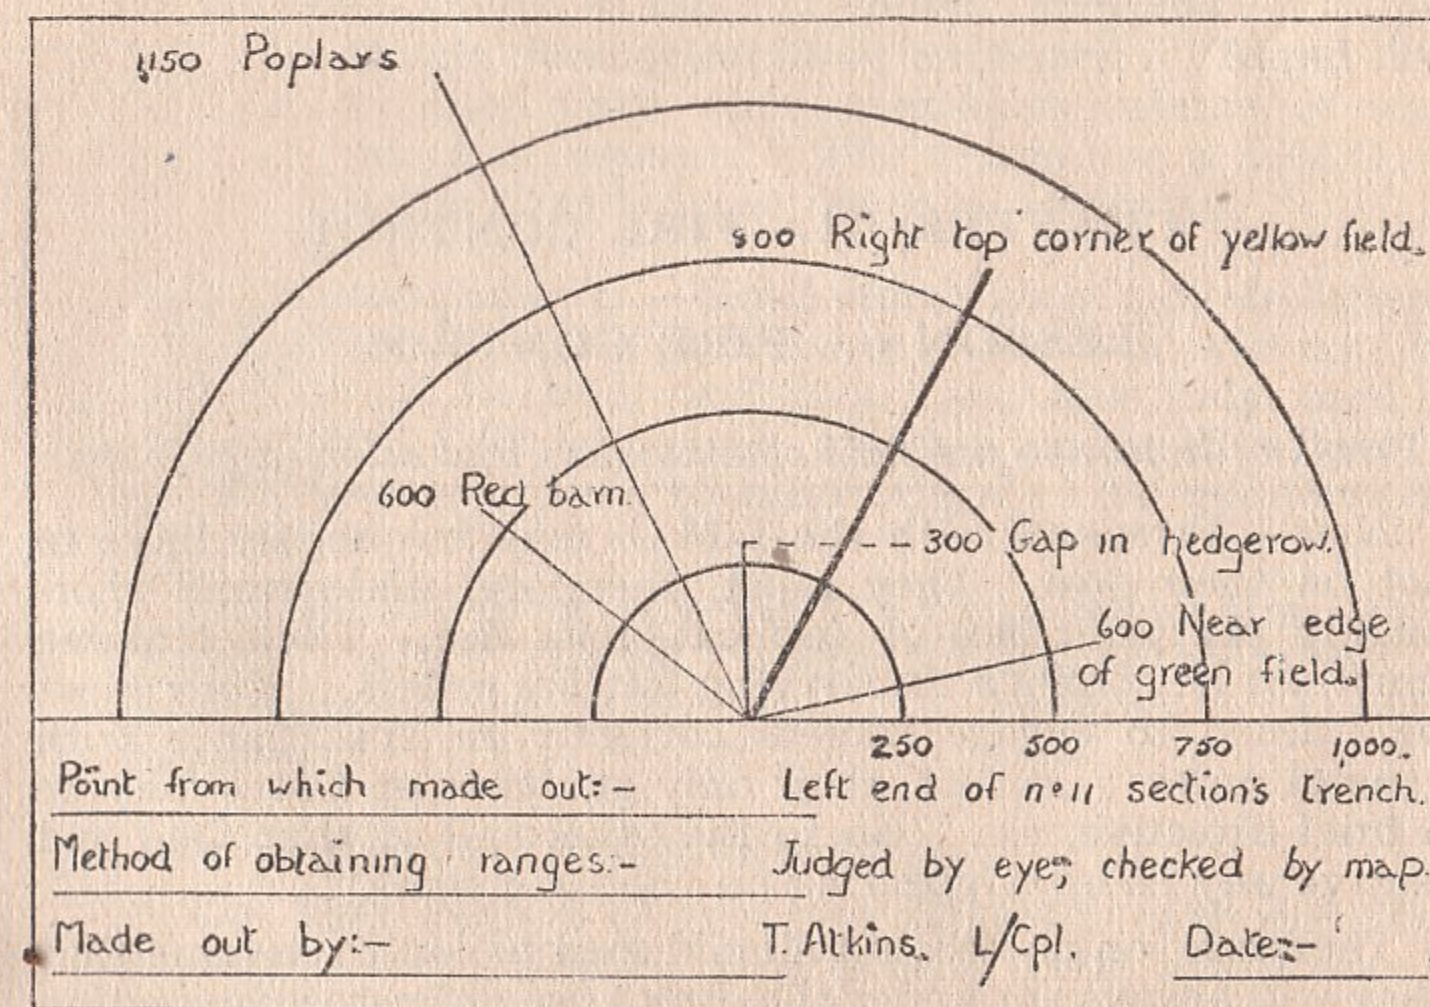 1150 Poplars
800 Right top corner of yellow field.
600 Red barn.
300 Gap in hedgerow.
600 Near edge
of green field.
250 500 750 1,000.
Point from which made out:- Left end of nº 11 section's trench.
Method of obtaining ranges:- Judged by eye; checked by map.
Made out by:- T. Atkins. L/Cpl. Date:-